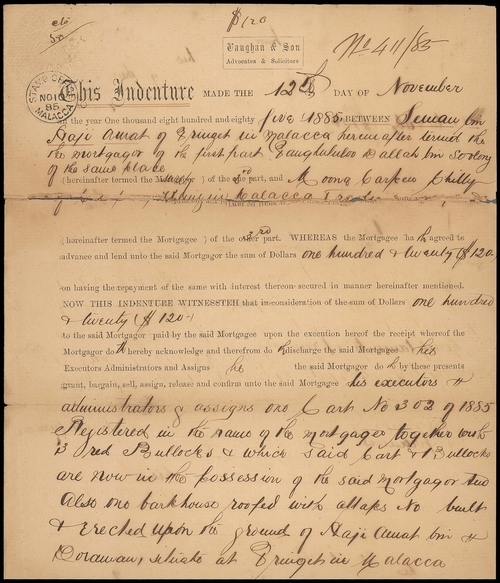 $120
Vaughan & Son
Advocates & Solicitors
No 411/85
STAMP OFFICE
NO 10
85
MALACCA
This Indenture MADE THE 12th DAY OF November
in the year One thousand eight hundred and eighty five 1885 BETWEEN Seman bin
Haji Amat of Bringet in Malacca hereinafter termed the
the mortgagor of the first part
of the same place
(hereinafter termed the ) of the 2nd part, and Moona
Malacca Trader
(hereinafter termed the Mortgagee ) of the other 3rd part. WHEREAS the Mortgagee hath agreed to
advance and lend unto the said Mortgagor the sum of Dollars one hundred & twenty ($120.
on having the repayment of the same with interest thereon secured in manner hereinafter mentioned.
NOW THIS INDENTURE WITNESSETH that in consideration of the sum of Dollars one hundred
& twenty ($120-)
to the said Mortgagor paid by the said Mortgagee upon the execution hereof the receipt whereof the
Mortgagor doth hereby acknowledge and therefrom doth discharge the said Mortgagee his
Executors Administrators and Assigns he the said Mortgagor doth by these presents
grant, bargain, sell, assign, release and confirm unto the said Mortgagee his executors
administrators & assigns one Cart No 302 of 1885
Registered in the name of the mortgagor together with
3 red Bullocks & which said Cart & Bullocks
are now in the Possession of the said Mortgagor And
Also one bark house roofed with attaps No built
& Erected upon the ground of Haji Amat bin
situate at Bringet in Malacca